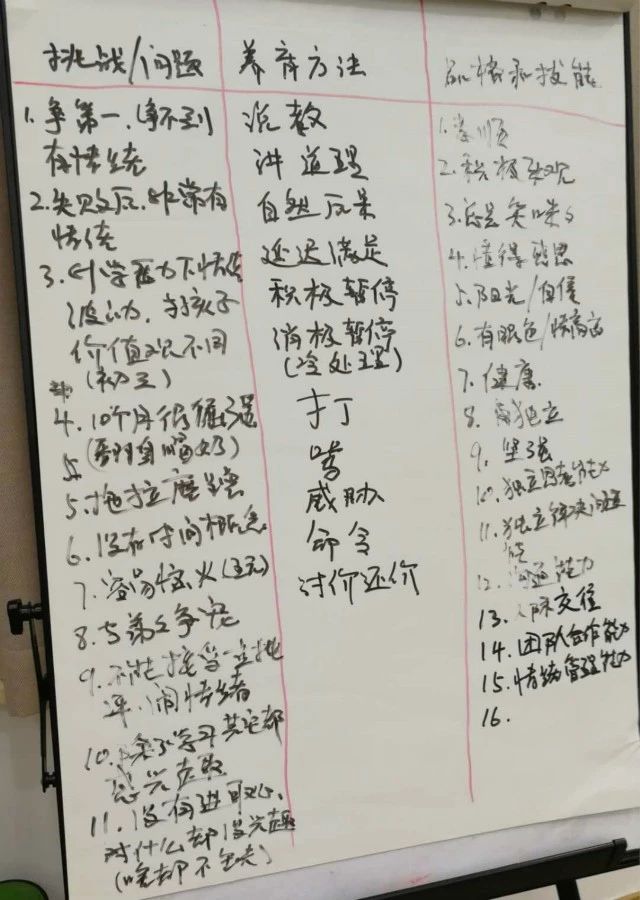 挑战/问题
1.争第一、争不到
有情绪
2.失败后,非常有
情绪
3.小学压力下情绪
波动,与孩子
价值观不同
(初三)
4.10个月很倔强
5.拖拉磨蹭
6.没有时间概念
7.容易恼火(五元)
8.与弟弟争宠
9.不能接受一点批
评、闹情绪
10.除了学习其它都
感兴趣
11.没有进取心,
对什么都没兴趣
(啥都不
养育方法
说教
讲道理
自然后果
延迟满足
积极暂停
消极暂停
(冷处理)
打
骂
威胁
命令
讨价还价
品格和技能
1.孝顺
2.积极乐观
3.总是笑嘻嘻
4.懂得感恩
5.阳光/自信
6.有眼色/情商高
7.健康
8.独立
9.坚强
10.独立思考能力
11.独立解决问题
能
12.沟通能力
13.人际交往
14.团队合作能力
15.情绪管理能力
16.